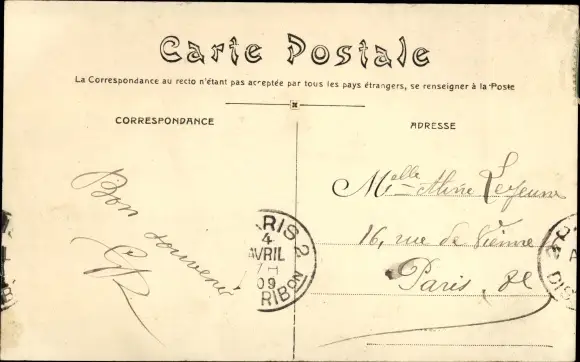 Carte Postale
La Correspondance au recto n'étant pas acceptée par tous les pays étrangers, se renseigner à la Poste
CORRESPONDANCE
ADRESSE
Bon souvenir
Melle Aline Lejeune
16, rue de Vienne
Paris, 8e
ARIS 2
4
AVRIL
09
RIBON
DIS